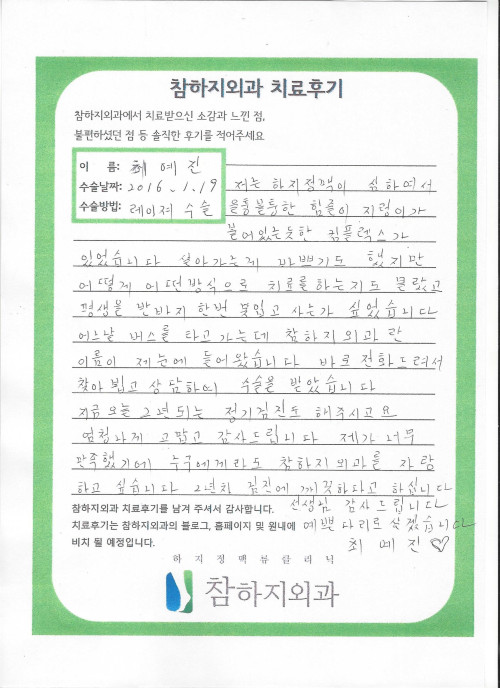 참하지외과 치료후기
참하지외과에서 치료받으신 소감과 느낀 점,
불편하셨던 점 등 솔직한 후기를 적어주세요
이 름: 최 예 진
수술날짜: 2016. 1. 19
수술방법: 레이저 수술
저는 하지정맥이 심하여서
울퉁불퉁한 힘줄이 지렁이가
붙어있는듯한 컴플렉스가
있었습니다 살아가는게 바쁘기도 했지만
어떻게 어떤방식으로 치료를하는지도 몰랐고
평생을 반바지 한번 못입고 사는가 싶었습니다
어느날 버스를 타고가는데 참하지외과 란
이름이 제눈에 들어왔습니다 바로 전화드려서
찾아뵙고 상담하여 수술을 받았습니다
지금 오늘 2년되는 정기검진도 해주시고요
엄첨나게 고맙고 감사드립니다 제가 너무
만족했기에 누구에게라도 참하지외과를 자랑
하고 싶습니다 2년차 검진에 깨끗하다고 하십니다
선생님 감사드립니다
참하지외과 치료후기를 남겨 주셔서 감사합니다.
치료후기는 참하지외과의 블로그, 홈페이지 및 원내에
예쁜 다리로 살겠습니다
비치 될 예정입니다.
최 예 진 ♡
하 지 정 맥 류 클 리 닉
참하지외과